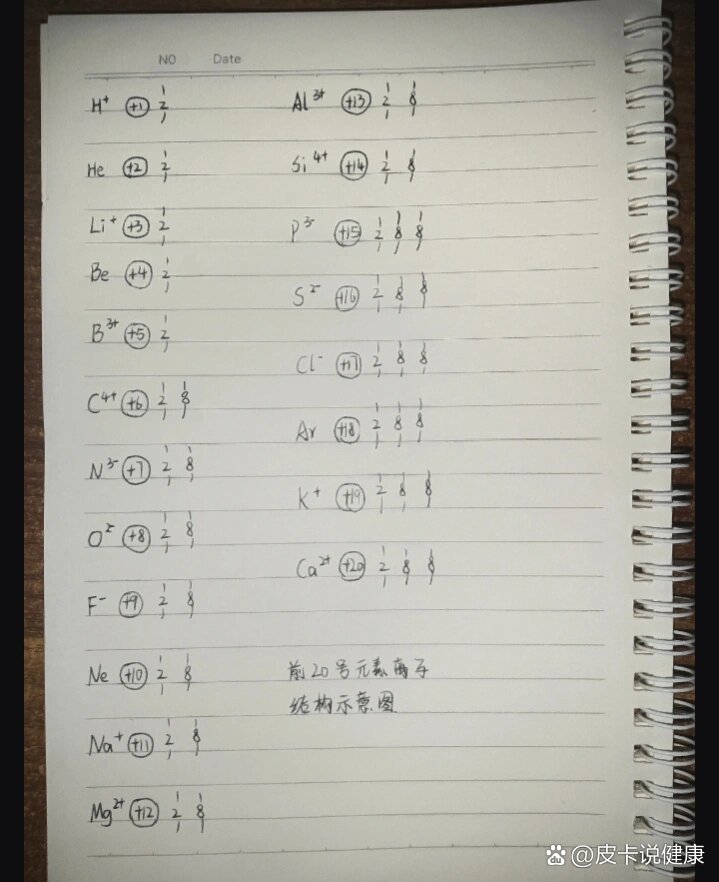 NO Date
H⁺ +1 2
He +2 2
Li⁺ +3 2
Be +4 2
B³⁺ +5 2
C⁴⁺ +6 2 8
N³⁻ +7 2 8
O²⁻ +8 2 8
F⁻ +9 2 8
Ne +10 2 8
Na⁺ +11 2 8
Mg²⁺ +12 2 8
Al³⁺ +13 2 8
Si⁴⁺ +14 2 8
P³⁻ +15 2 8 8
S²⁻ +16 2 8 8
Cl⁻ +17 2 8 8
Ar +18 2 8 8
K⁺ +19 2 8 8
Ca²⁺ +20 2 8 8
前20号元素离子
结构示意图
@皮卡说健康